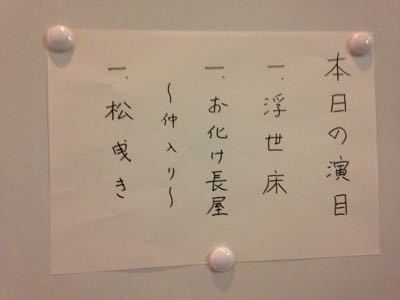 本日の演目
一、浮世床
一、お化け長屋
〜仲入り〜
一、松曳き